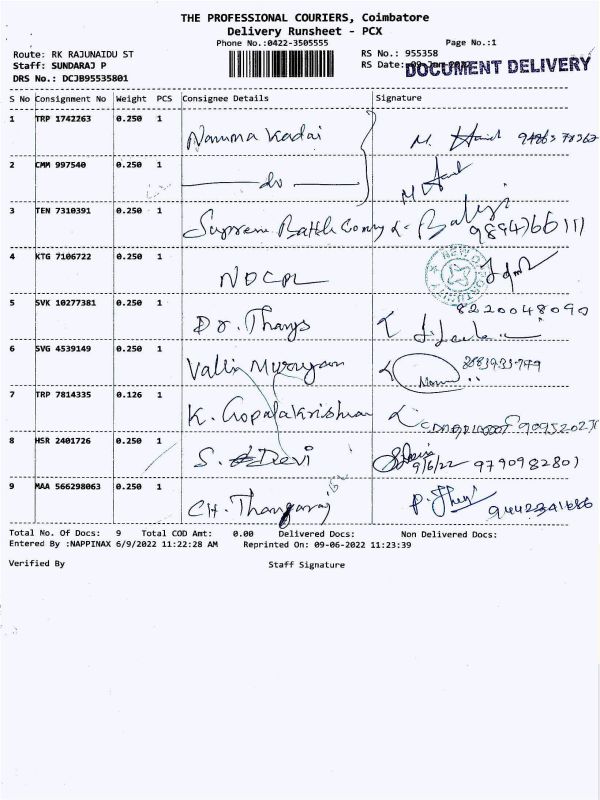 THE PROFESSIONAL COURIERS, Coimbatore
Delivery Runsheet - PCX
Phone No.:0422-3505555 Page No.:1
Route: RK RAJUNAIDU ST RS No.: 955358
Staff: SUNDARAJ P RS Date: DOCUMENT DELIVERY
DRS No.: DCJB95535801
S No Consignment No Weight PCS Consignee Details Signature
1 TRP 1742263 0.250 1 Namma Kadai M.
2 CMM 997540 0.250 1 do M
3 TEN 7310391 0.250 1 Suprem Battle 9894766111
4 KTG 7106722 0.250 1 NOCPL NEW OPPORTUNITY
5 SVK 10277381 0.250 1 Dr. Thangs 8220048090
6 SVG 4539149 0.250 1 Valli Murugan
7 TRP 7814335 0.126 1 K. Gopalakrishnan
8 HSR 2401726 0.250 1 S. Devi 9/6/22 9790982801
9 MAA 566298063 0.250 1 CH. Thangaraj P.
Total No. Of Docs: 9 Total COD Amt: 0.00 Delivered Docs: Non Delivered Docs:
Entered By :NAPPINAX 6/9/2022 11:22:28 AM Reprinted On: 09-06-2022 11:23:39
Verified By Staff Signature